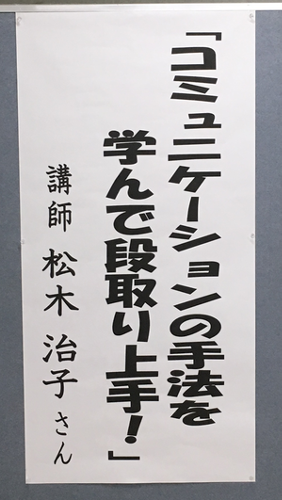 「コミュニケーションの手法を
学んで段取り上手！」
講師 松木 治子 さん